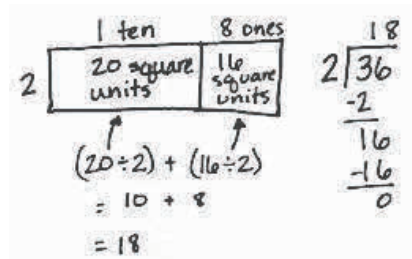 1 ten 8 ones
2
20 square units
16 square units
(20÷2) + (16÷2)
= 10 + 8
= 18
18
2)36
-2
16
-16
0